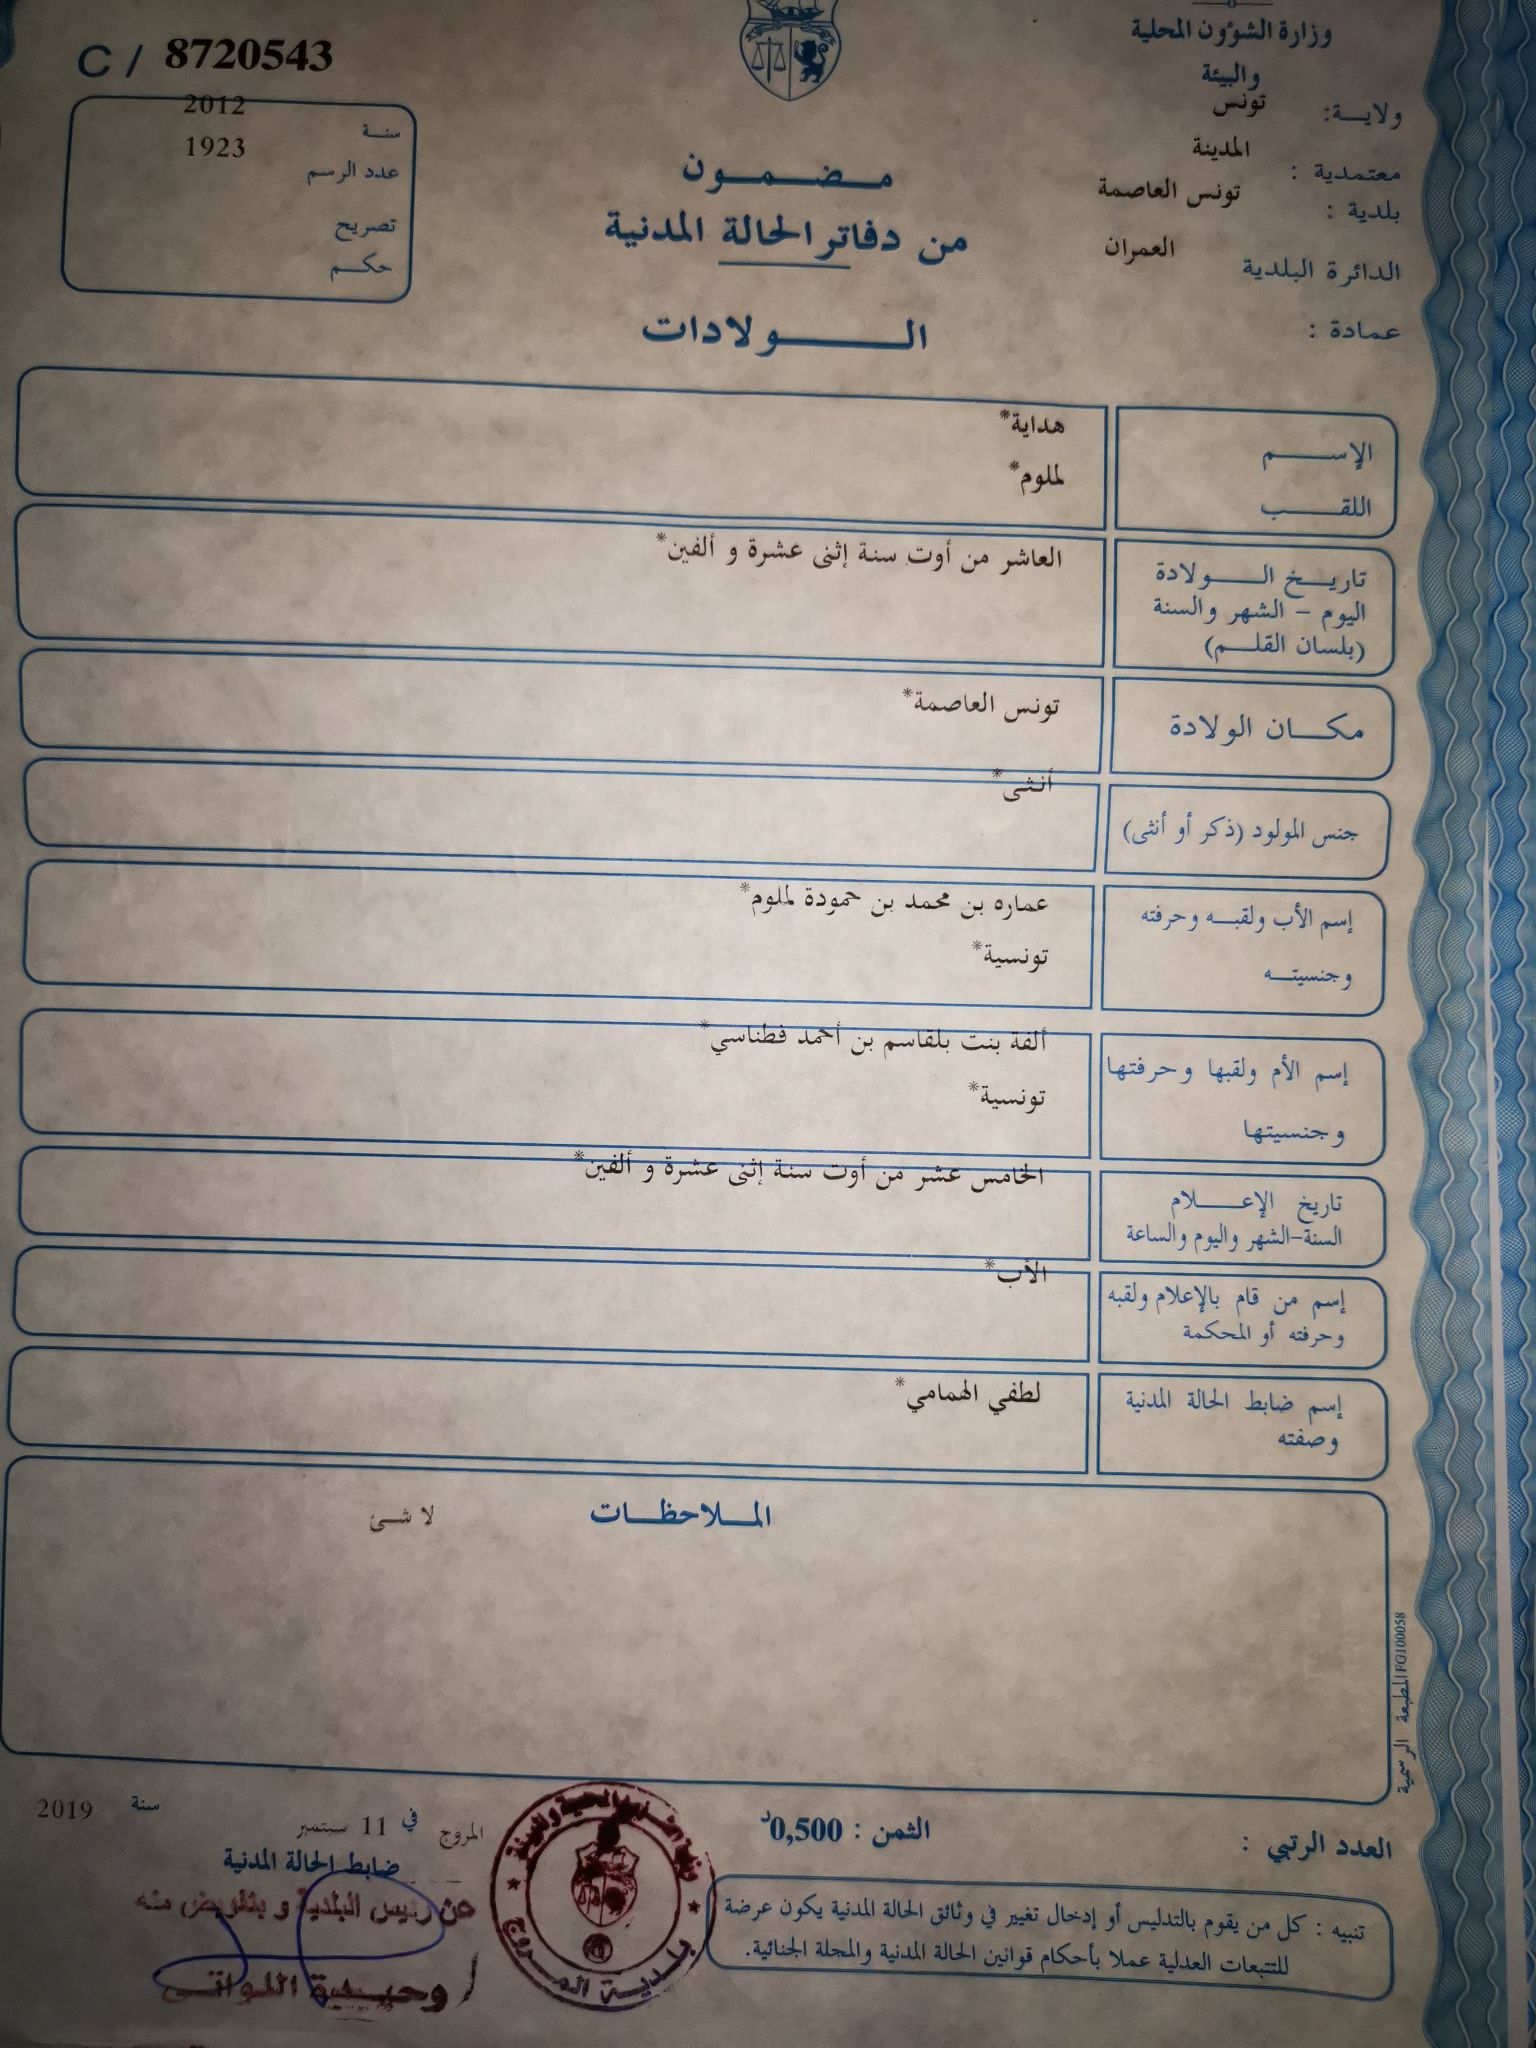 وزارة الشؤون المحلية
والبيئة
ولايـــة: تونس
معتمدية : المدينة
بلدية : تونس العاصمة
الدائرة البلدية العمران
عمادة :
مـــضـــمـــون
من دفاتر الحالة المدنية
الـــــولادات
C / 8720543
سنـــة 2012
عدد الرسم 1923
تصريح
حكـــم
الإســـــم هداية*
اللقـــــب لملوم*
تاريـــخ الـــــولادة العاشر من أوت سنة إثنى عشرة و ألفين*
اليوم – الشهر والسنة
(بلسان القلـــم)
مكـــان الولادة تونس العاصمة*
جنس المولود (ذكر أو أنثى) أنـثـى*
إسم الأب ولقبـــه وحرفته عماره بن محمد بن حمودة لملوم*
وجنسيتـــه تونسية*
إسم الأم ولقبها وحرفتها ألفة بنت بلقاسم بن أحمد فطناسي*
وجنسيتها تونسية*
تاريخ الإعـــــلام الخامس عشر من أوت سنة إثنى عشرة و ألفين*
السنة-الشهر واليوم والساعة
إسم من قام بالإعلام ولقبه الأب*
وحرفته أو المحكمة
إسم ضابط الحالة المدنية لطفي الهمامي*
وصفته
المـــلاحظـــات لا شـئ
المطبعة الرسمية FG100058
العدد الرتبي :
الثمن : 0,500د
تنبيه : كل من يقوم بالتدليس أو إدخال تغيير في وثائق الحالة المدنية يكون عرضة
للتتبعات العدلية عملا بأحكام قوانين الحالة المدنية والمجلة الجنائية.
المروج في 11 سبتمبر سنة 2019
ضابط الحالة المدنية
عن رئيس البلدية و بتفويض منه
وحيـــدة اللواتـــي
بلدية المروج